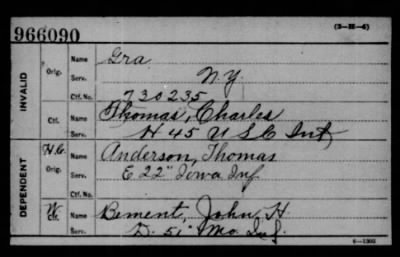 966090
(3-H-6)
INVALID
Orig. Name Gra
Serv. N.Y.
Ctf. No. 730235
Ctf. Name Thomas, Charles
Serv. H 45 U S C Inf
DEPENDENT
H.C. Orig. Name Anderson, Thomas
Serv. E 22" Iowa Inf.
Ctf. No.
W Ctf. Name Bement, John H
Serv. D. 51 Mo. Inf.
6-1302